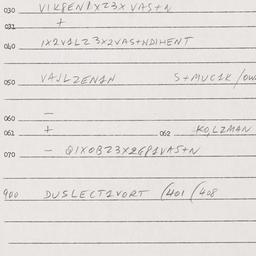 030 VIKPEN1XZ3XVAS+N
031 +
040 1X2V1LZ3X2VAS+NDIHENT
050 VAJLZENIN S+MUC1K/
060 —
061 + 062 KOLZMAN
070 — Q1XOBZ3X2GP1VAS+N
900 DUSLECT1VORT (401 (408